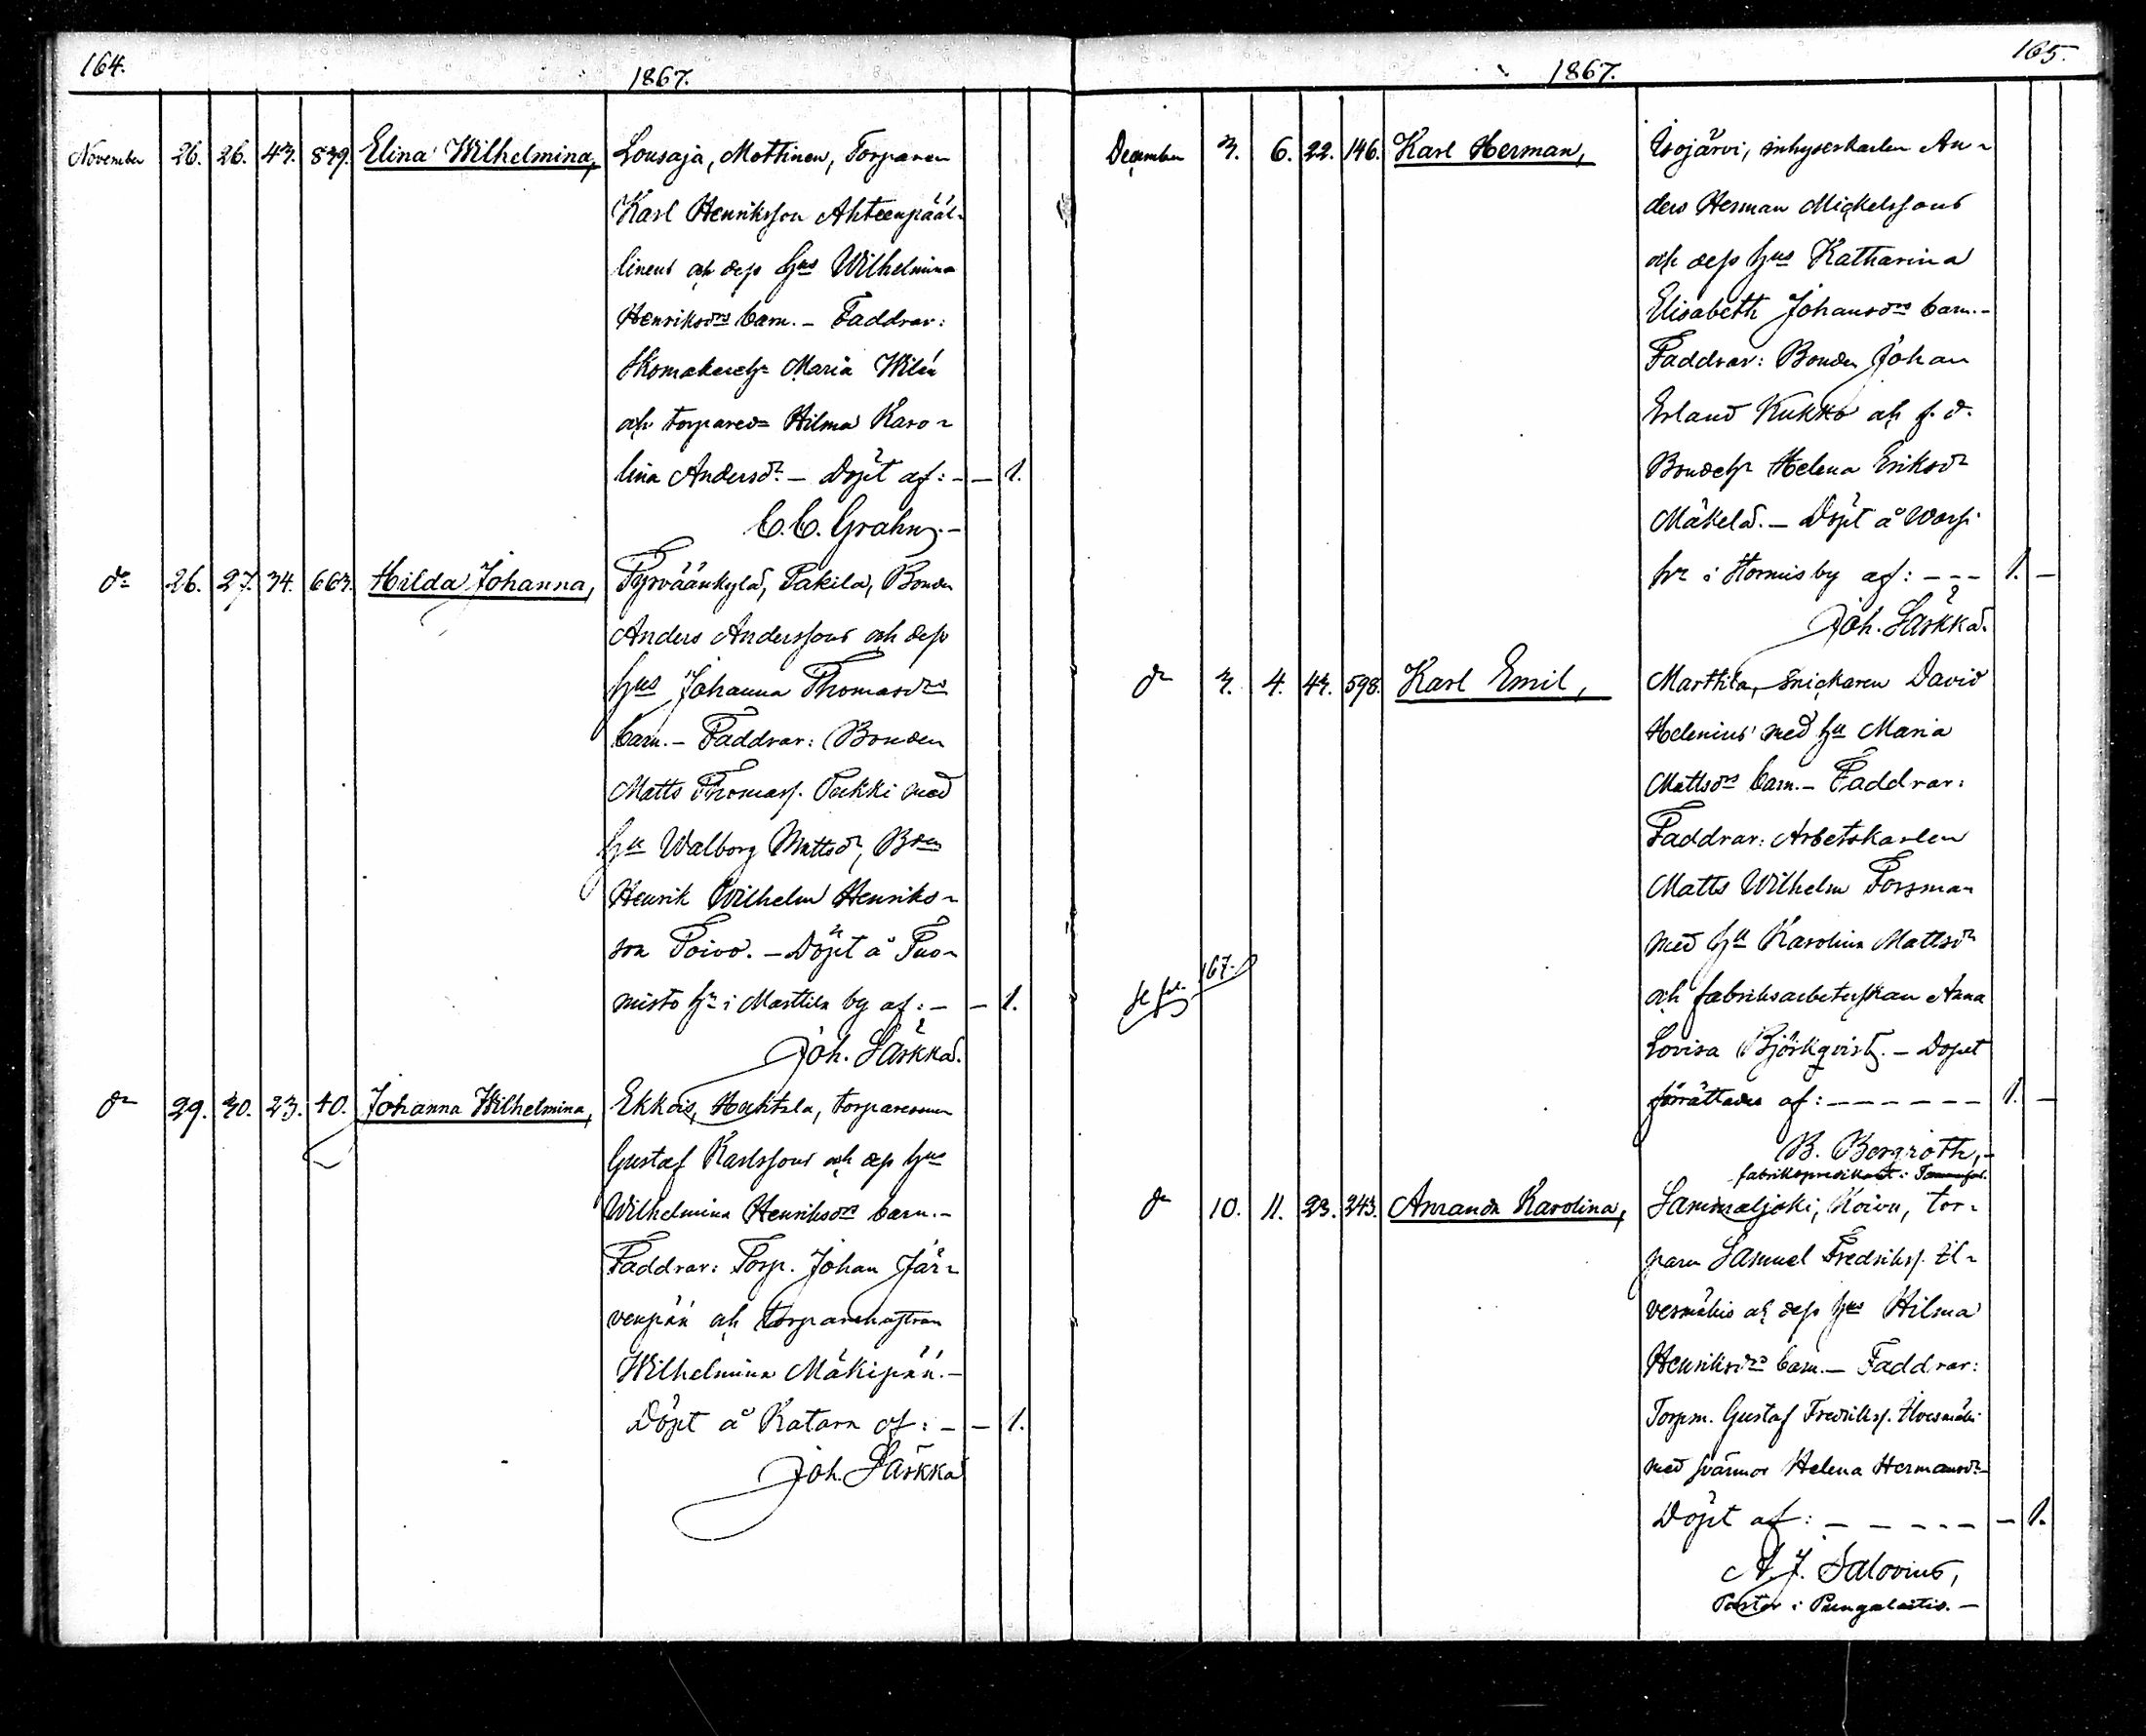 164.
1867.
November 26. 26. 43. 839. Elina Wilhelmina, Lousaja, Mottinen, Torparen
Karl Henriksson Ahteenpääl-
linens och dess hus Wilhelmina
Henriksdrs barn. – Faddrar:
Skomakareh. Maria Wilén
och torpared. Hilma Karo-
lina Andersdr. – Döpt af: – – 1.
C. C. Grahn. –
do 26. 27. 34. 663. Hilda Johanna, Tyrväänkylä, Pakila, Bonden
Anders Anderssons och dess
hus Johanna Thomasdrs
barn. – Faddrar: Bonden
Matts Thomass. Pukki med
hu Walborg Mattsdr, Bden
Henrik Wilhelm Henriks-
son Toivo. – Döpt å Tuo-
misto hn i Marttila by af: – – 1.
Joh. Särkkä.
do 29. 30. 23. 40. Johanna Wilhelmina, Ekkois, Huhtala, torparesonen
Gustaf Karlssons och dess hus
Wilhelmina Henriksdrs barn. –
Faddrar: Torp. Johan Jär-
venpää och torparehustrun
Wilhelmina Mäkipää. –
Döpt å Katara af: – – 1.
Joh. Särkkä
165.
1867.
December 3. 6. 22. 146. Karl Herman, Isojärvi, inhyseskarlen An-
ders Herman Mickelssons
och dess hus Katharina
Elisabeth Johansdrs barn. –
Faddrar: Bonden Johan
Erland Kukko och f. d.
Bondeh. Helena Eriksdr
Mäkelä. – Döpt å
hn i Hormis by af: – – – 1. –
Joh. Särkkä.
do 3. 4. 43. 598. Karl Emil, Marttila, Snickaren David
Helenius' med hu Maria
Mattsdrs barn. – Faddrar:
Faddrar: Arbetskarlen
Matts Wilhelm Forsman
med hu Karolina Mattsdr
se fol. 167.
och fabriksarbeterskan Anna
Lovisa Björkqvist. – Dopet
förrättades af: – – – – – – 1. –
B. Bergroth, –
fabrikspredikant i
do 10. 11. 23. 243. Amanda Karolina, Sammaljoki, Koivu, tor-
paren Samuel Fredrikss. Il-
vesmäkis och dess hus Hilma
Henriksdrs barn. – Faddrar:
Torpm. Gustaf Fredrikss. Ilvesmäki
med svärmor Helena Hermansdr –
Döpt af: – – – – – – 1.
A. J. Salovius,
Pastor i Pungalaitio. –